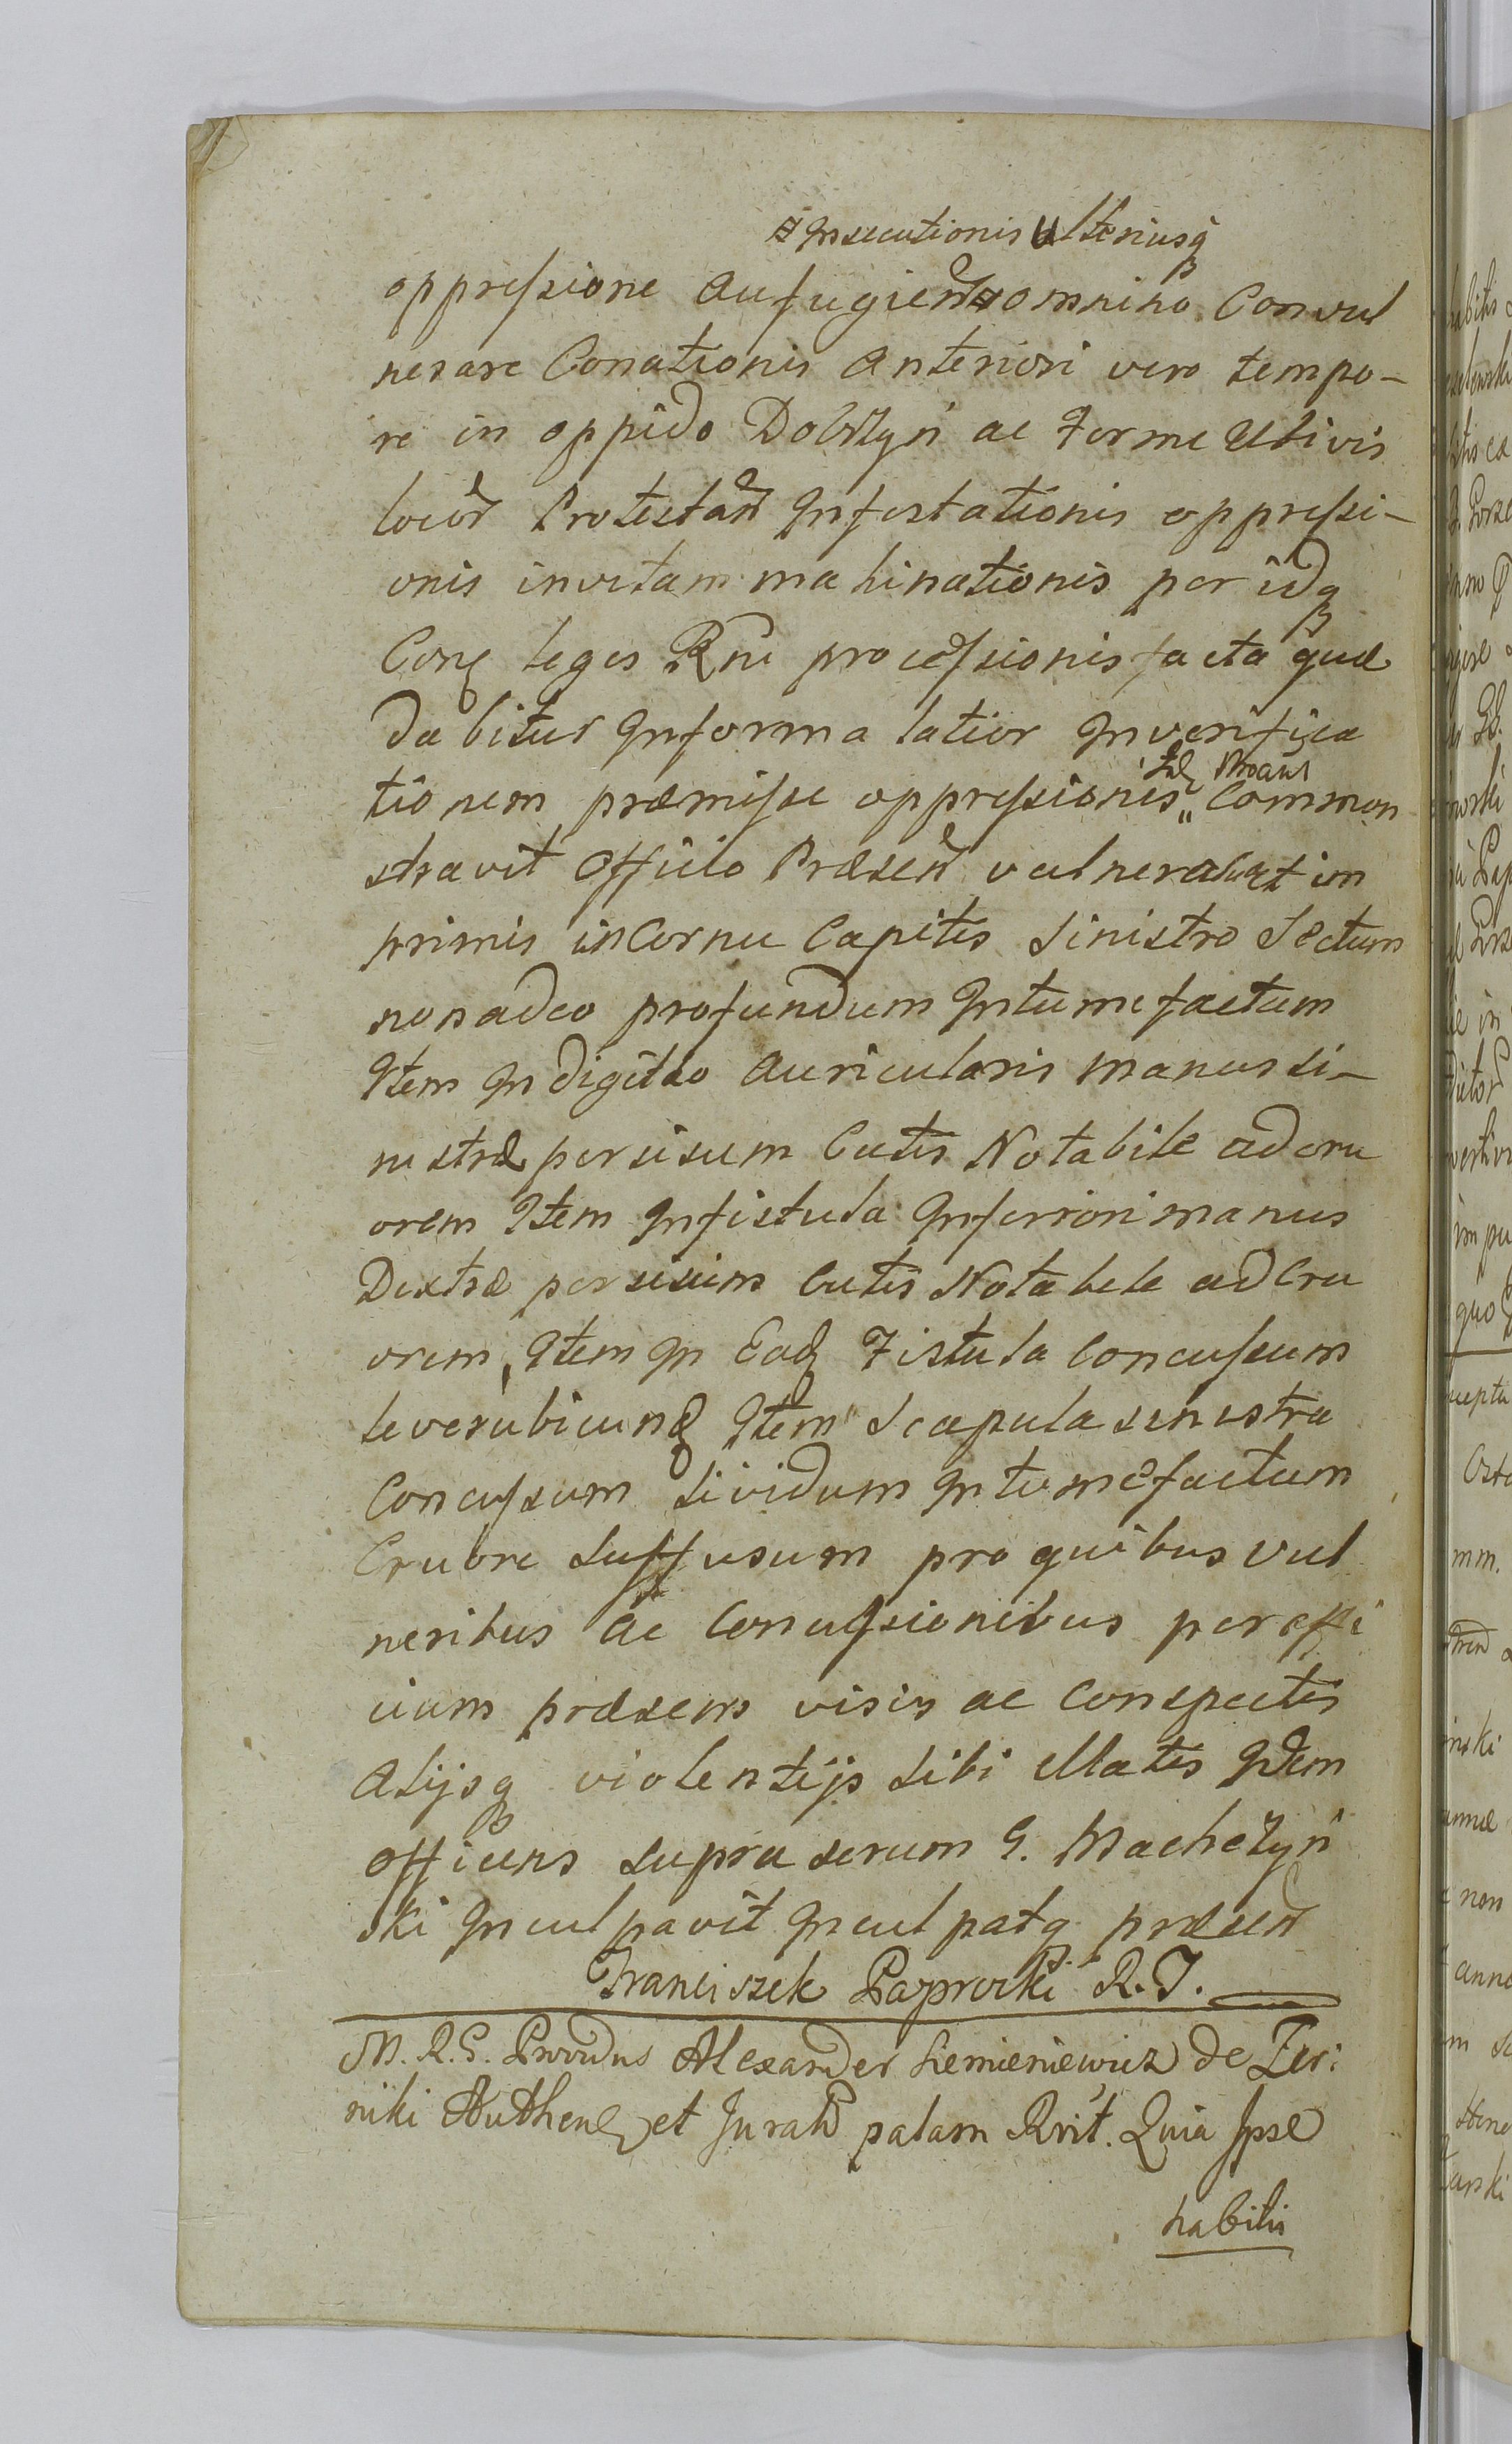 Insecutionis Ulteriusq
oppressione aufugiend omnino Convul
nerare Conationis anteriori vero tempo-
re in oppido Dobrzyń ac Ferme Ubivis
locor Protestan Infestationis oppressi-
onis invitam machinationis per idq
Conq leges Rni processionis facta quæ
dabitur Informa latior Inverifica
tionem præmisse oppressionis Idq Protans Common
stravit Officio Præsen vulnera  im
primis in Cornu Capitis Sinistro Sectum
non adeo profundum Intumefactum
Item In digito auricularis manus si-
nistræ percisum Cutis Notabile ad cru
orem Item Infistula Inferiori manus
Dextræ percisum Cutis Notabele ad Cru
orem, Item In Eadq Fistula Concussum
leverubicundq Item Scapula sinistra
Concussum lividum Intumefactum
Cruore Suffusum pro quibus vul
neribus ac Concussionibus per offi
cium præsens visis ac Conspectis
alijsq violentijs Sibi illatis Idem
officiens supra serum G. Machczyń
ski Inculpavit Inculpatq præsen
Franciszek Paprocki R. J.
M. R. G. Providus Alexander Siemieniewicz de Zer:
niki Authen et Jurat palam Rvit. Quia Ipse
habitis